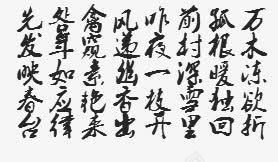 万木冻欲折
孤根暖独回
前村深雪里
昨夜一枝开
风递幽香出
禽窥素艳来
如应律
先发映春台